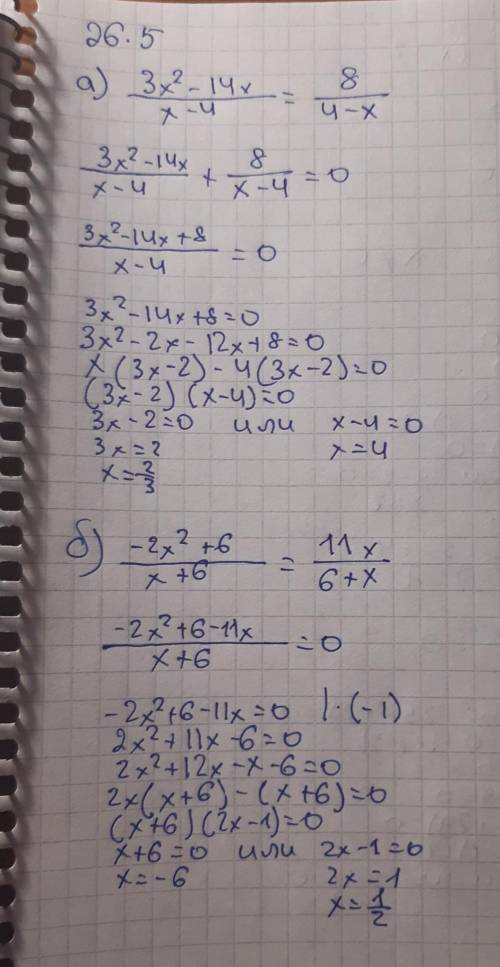 26.5
а) (3x² - 14x)/(x - 4) = 8/(4 - x)
(3x² - 14x)/(x - 4) + 8/(x - 4) = 0
(3x² - 14x + 8)/(x - 4) = 0
3x² - 14x + 8 = 0
3x² - 2x - 12x + 8 = 0
x(3x - 2) - 4(3x - 2) = 0
(3x - 2)(x - 4) = 0
3x - 2 = 0 или x - 4 = 0
3x = 2 x = 4
x = 2/3
б) (-2x² + 6)/(x + 6) = 11x/(6 + x)
(-2x² + 6 - 11x)/(x + 6) = 0
-2x² + 6 - 11x = 0 |·(-1)
2x² + 11x - 6 = 0
2x² + 12x - x - 6 = 0
2x(x + 6) - (x + 6) = 0
(x + 6)(2x - 1) = 0
x + 6 = 0 или 2x - 1 = 0
x = -6 2x = 1
x = 1/2